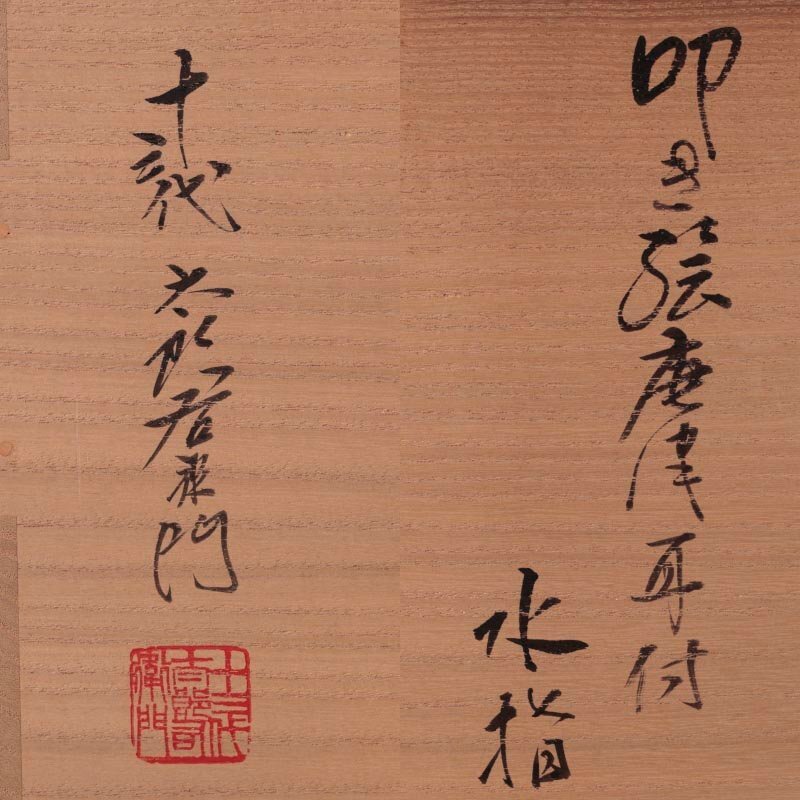 叩き絵唐津耳付
水指
十三代 太郎右衛門
十三代
太郎右
衛門